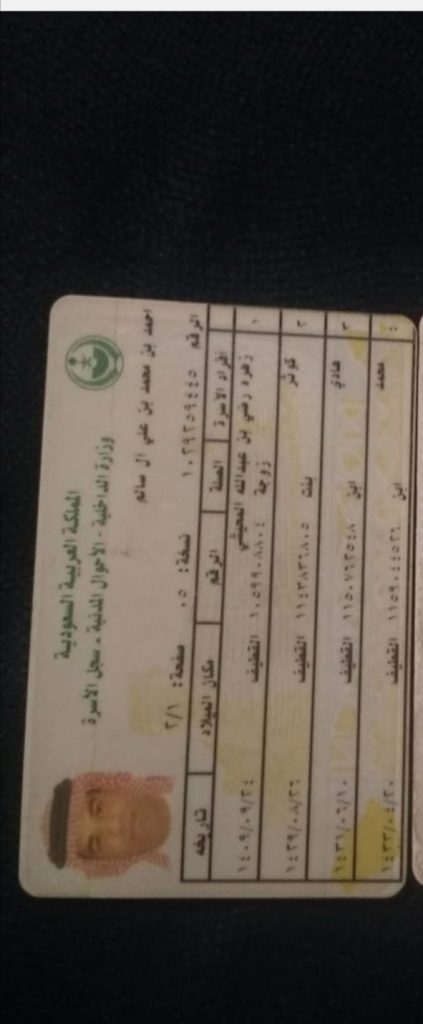 المملكة العربية السعودية
وزارة الداخلية - الأحوال المدنية - سجل الأسرة
احمد بن محمد بن علي آل سالم
الرقم ١٠٢٩٢٥٩٤٤٥ نسخة: ٠٥ صفحة: ٢/١
أفراد الأسرة الصلة الرقم مكان الميلاد تاريخه
١ زهره رضي بن عبدالله المحيشي
زوجة ١٠٥٩٩٠٨٨٠٤ القطيف ١٤٠٩/٠٩/٢٤
٢ كوثر
بنت ١١٤٣٨٣٦٨٠٥ القطيف ١٤٢٩/٠٨/٢٦
٣ هادي
ابن ١١٥٠٧٦٢٥٤٨ القطيف ١٤٣١/٠٦/١٠
٤ محمد
ابن ١١٥٩٠٤٤٥٢٦ القطيف ١٤٣٣/٠٤/٢٠